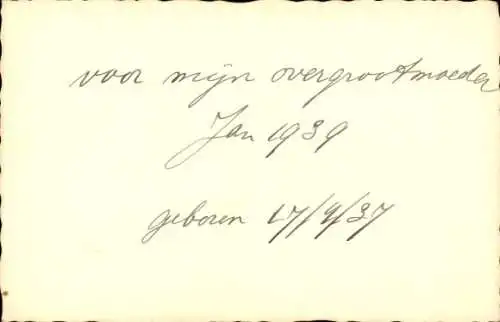 voor mijn overgrootmoeder
Jan 1939
geboren 17/9/37